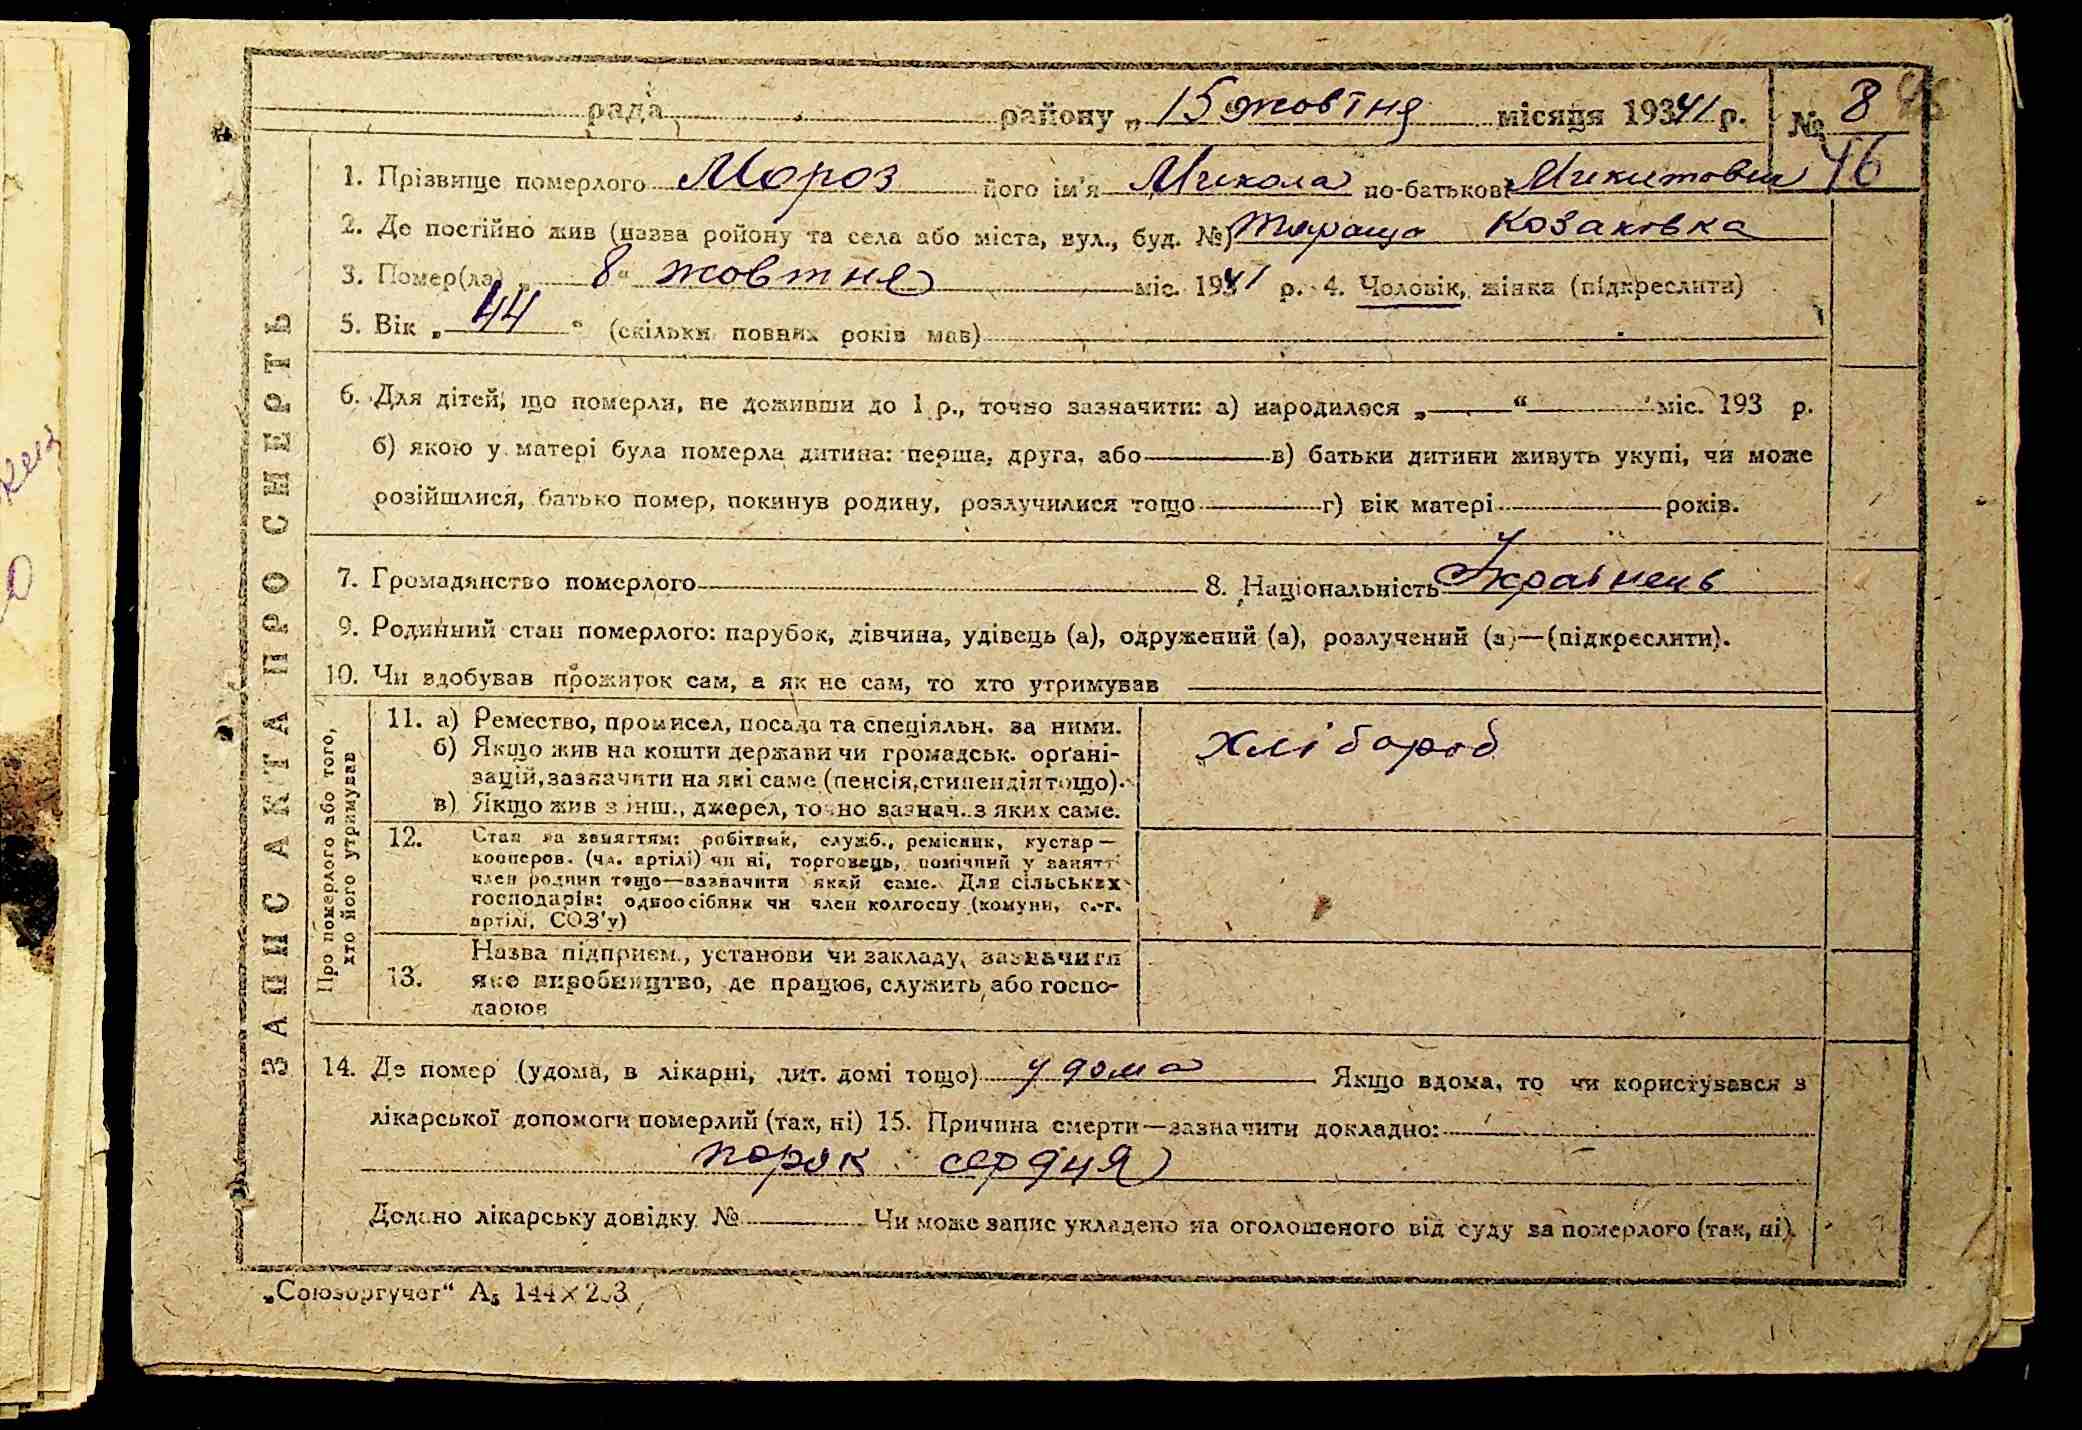 рада району „ 15 жовтня місяця 193 41 р. № 8
46
1. Прізвище померлого Мороз його ім'я Микола по-батькові Микитович
2. Де постійно жив (назва ройону та села або міста, вул., буд. №) Тараща Козаковка
3. Помер(ла) „ 8 “ жовтня міс. 1941 р. 4. Чоловік, жінка (підкреслити)
5. Вік „ 44 “ (скільки повних років мав)
6. Для дітей, що померли, не доживши до 1 р., точно зазначити: а) народилося „ “ міс. 193 р.
б) якою у матері була померла дитина: перша, друга, або в) батьки дитини живуть укупі, чи може
розійшлися, батько помер, покинув родину, розлучилися тощо г) вік матері років.
7. Громадянство померлого 8. Національність Українець
9. Родинний стан померлого: парубок, дівчина, удівець (а), одружений (а), розлучений (а)—(підкреслити).
10. Чи здобував прожиток сам, а як не сам, то хто утримував
ЗАПИС АКТА ПРО СМЕРТЬ
Про померлого або того,
хто його утримував
11. а) Ремество, промисел, посада та спеціяльн. за ними.
б) Якщо жив на кошти держави чи громадськ. орґані-
зацій, зазначити на які саме (пенсія, стипендія тощо).
в) Якщо жив з інш., джерел, точно зазнач. з яких саме.
хлібороб
12. Стан за заняттям: робітник, служб., ремісник, кустар—
кооперов. (чл. артілі) чи ні, торговець, помічний у занятті
член родини тощо—зазначити який саме. Для сільських
господарів: одноосібник чи член колгоспу (комуни, с.-г.
артілі, СОЗ'у)
13. Назва підприєм., установи чи закладу, зазначити
яке виробництво, де працює, служить або госпо-
дарює
14. Де помер (удома, в лікарні, дит. домі тощо) удома Якщо вдома, то чи користувався з
лікарської допомоги померлий (так, ні) 15. Причина смерти—зазначити докладно:
порок сердця
Додано лікарську довідку № Чи може запис укладено на оголошеного від суду за померлого (так, ні)
„Союзоргучет“ А5 144×203